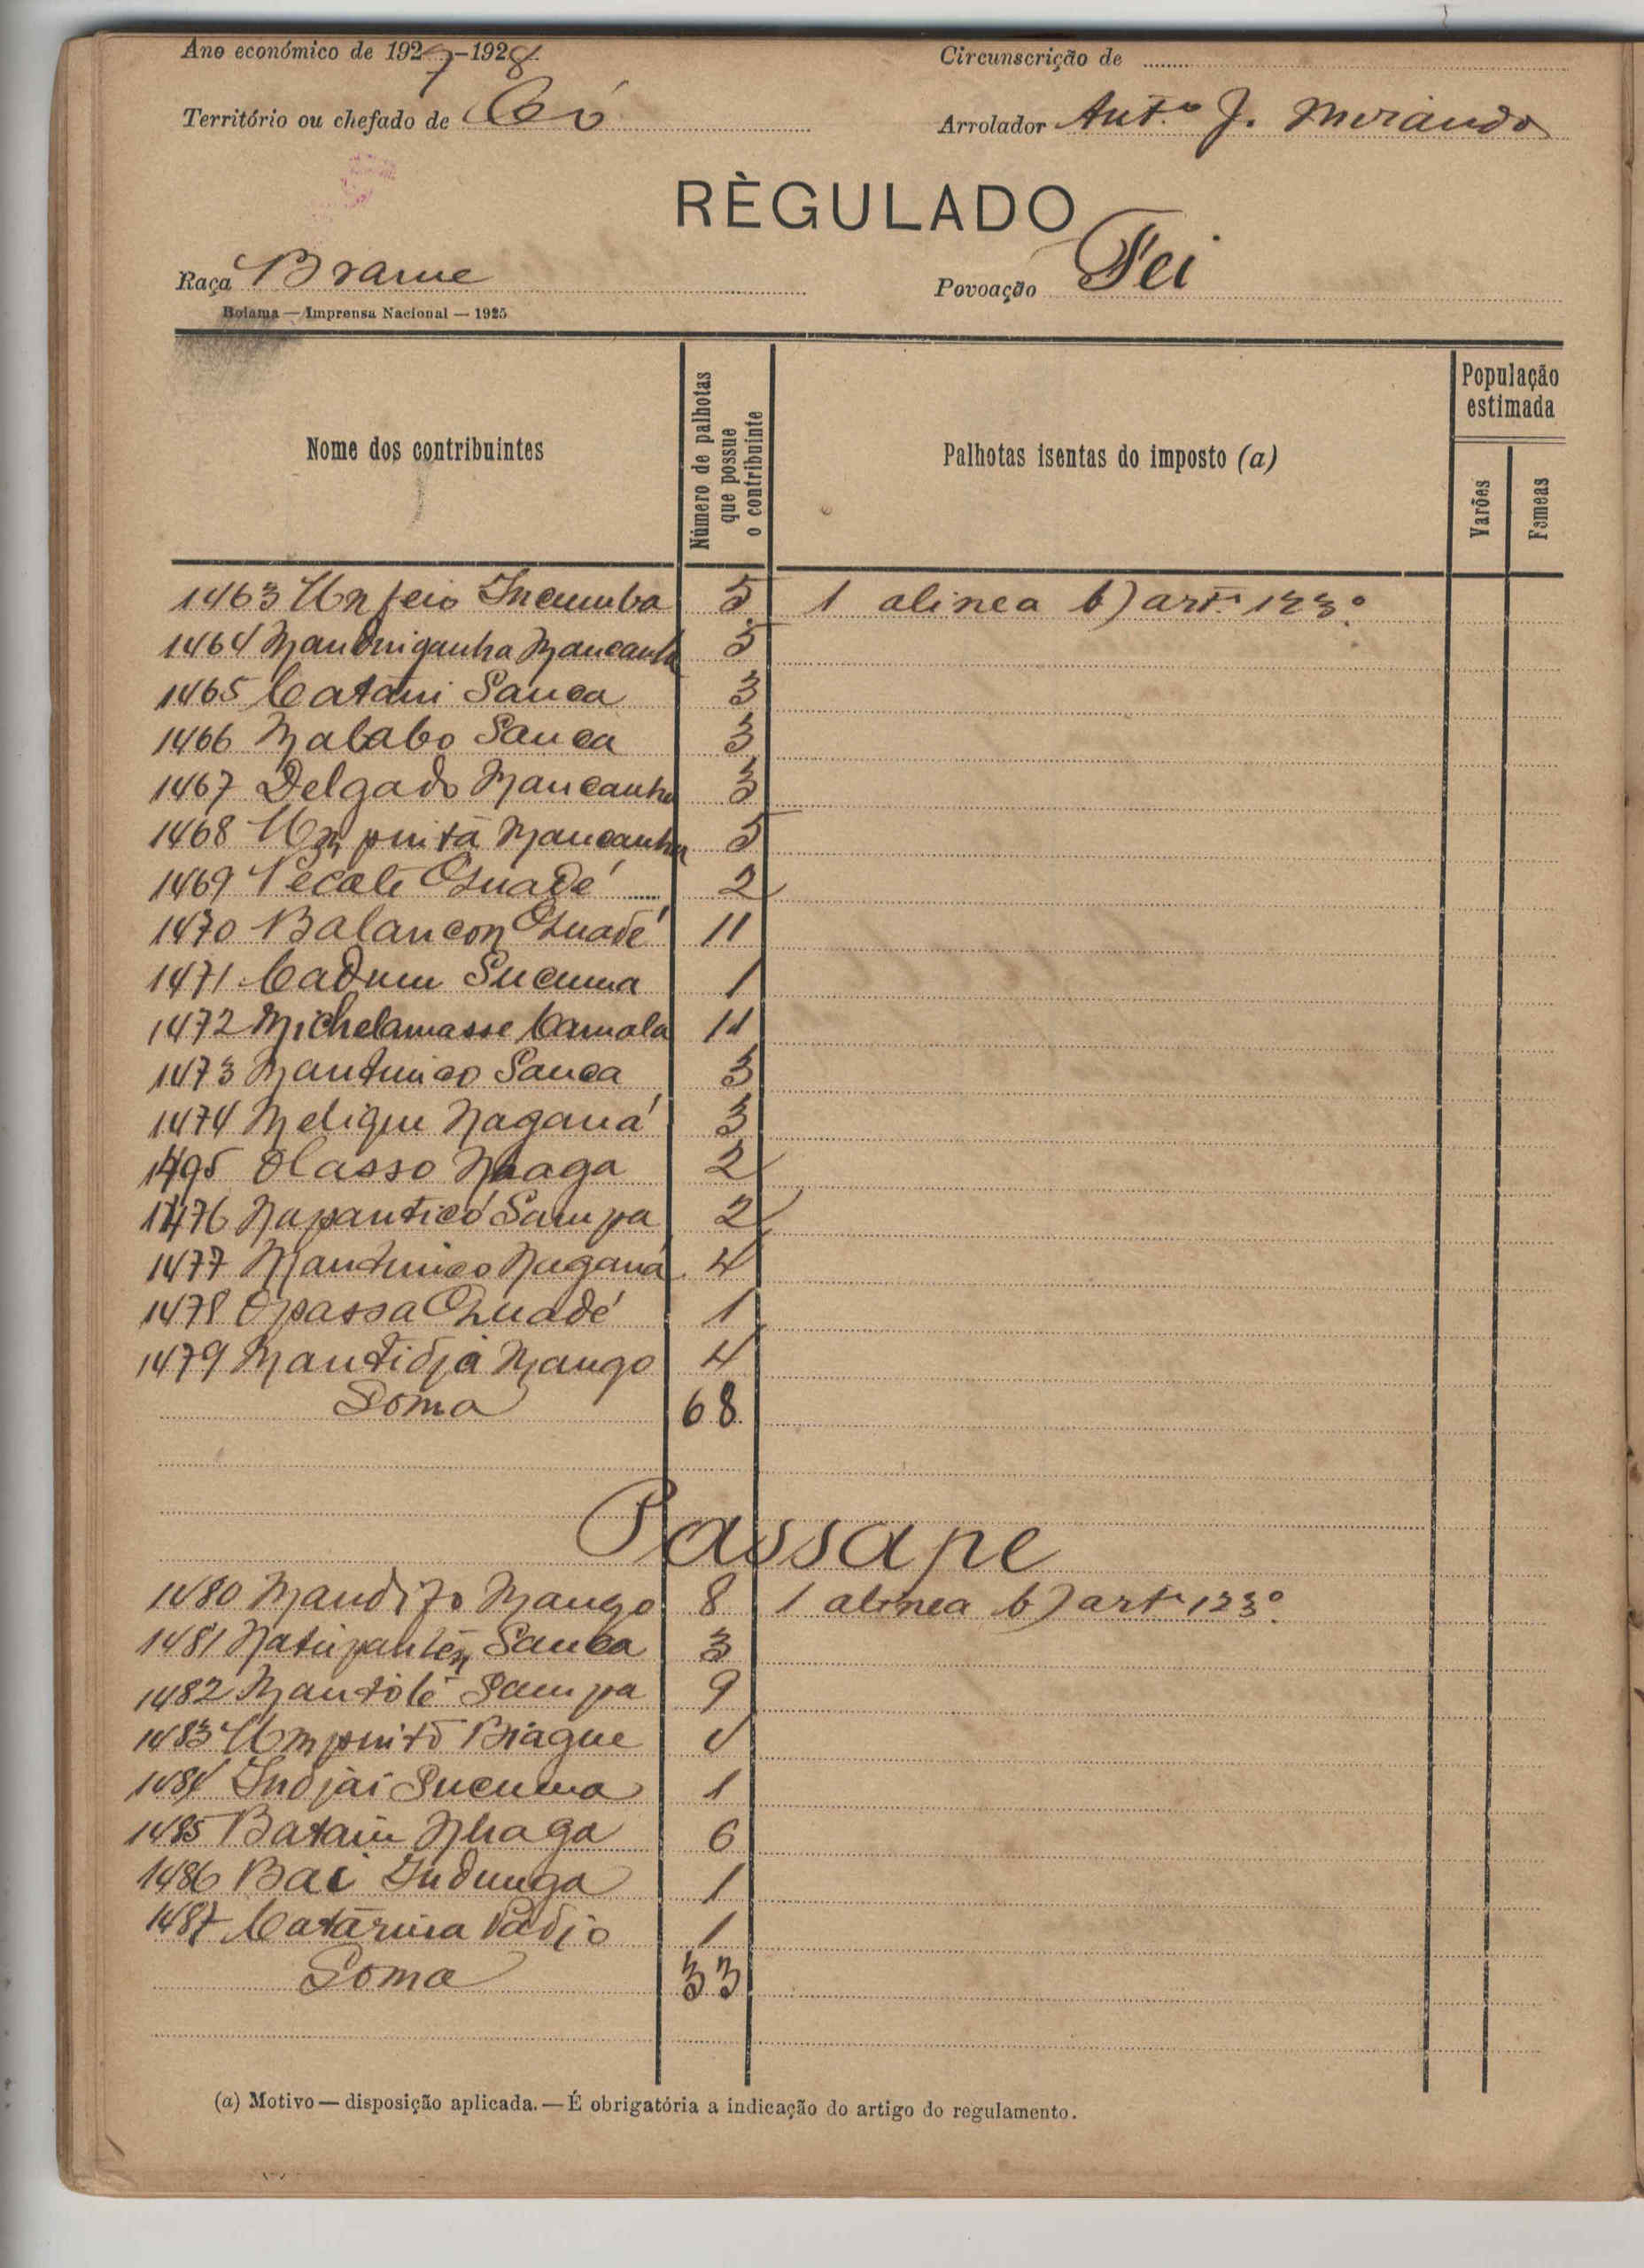 Ano económico de 1927-1928
Circunscrição de
Território ou chefado de Có
Arrolador Ant.º J. Miranda
RÈGULADO
Raça Brame
Povoação Fei
Bolama — Imprensa Nacional — 1925
Nome dos contribuintes
Número de palhotas que possue o contribuinte
Palhotas isentas do imposto (a)
População estimada
Varões
Fameas
1463 Incumba 5 1 alinea b) artº 123º
1464 Mancanha 5
1465 Catani Sanca 3
1466 Malabo Sanca 3
1467 Delgado Mancanha 3
1468 Mancanha 5
1469 Quadé 2
1470 Balancon Quadé 11
1471 Cadum Sucuma 1
1472 Michelamasse Camala 11
1473 Sanca 3
1474 Naganá 3
1475 Olasso Nhaga 2
1476 Sampa 2
1477 Naganá 4
1478 Opassa Quadé 1
1479 Mantidja Mango 4
Soma 68
Passape
1480 Mango 8 1 alinea b) artº 123º
1481 Sanca 3
1482 Mantolé Sampa 9
1483 Biague 4
1484 Indjai Sucuma 1
1485 Nhaga 6
1486 Bai Indunga 1
1487 Catarina 1
Soma 33
(a) Motivo — disposição aplicada. — É obrigatória a indicação do artigo do regulamento.